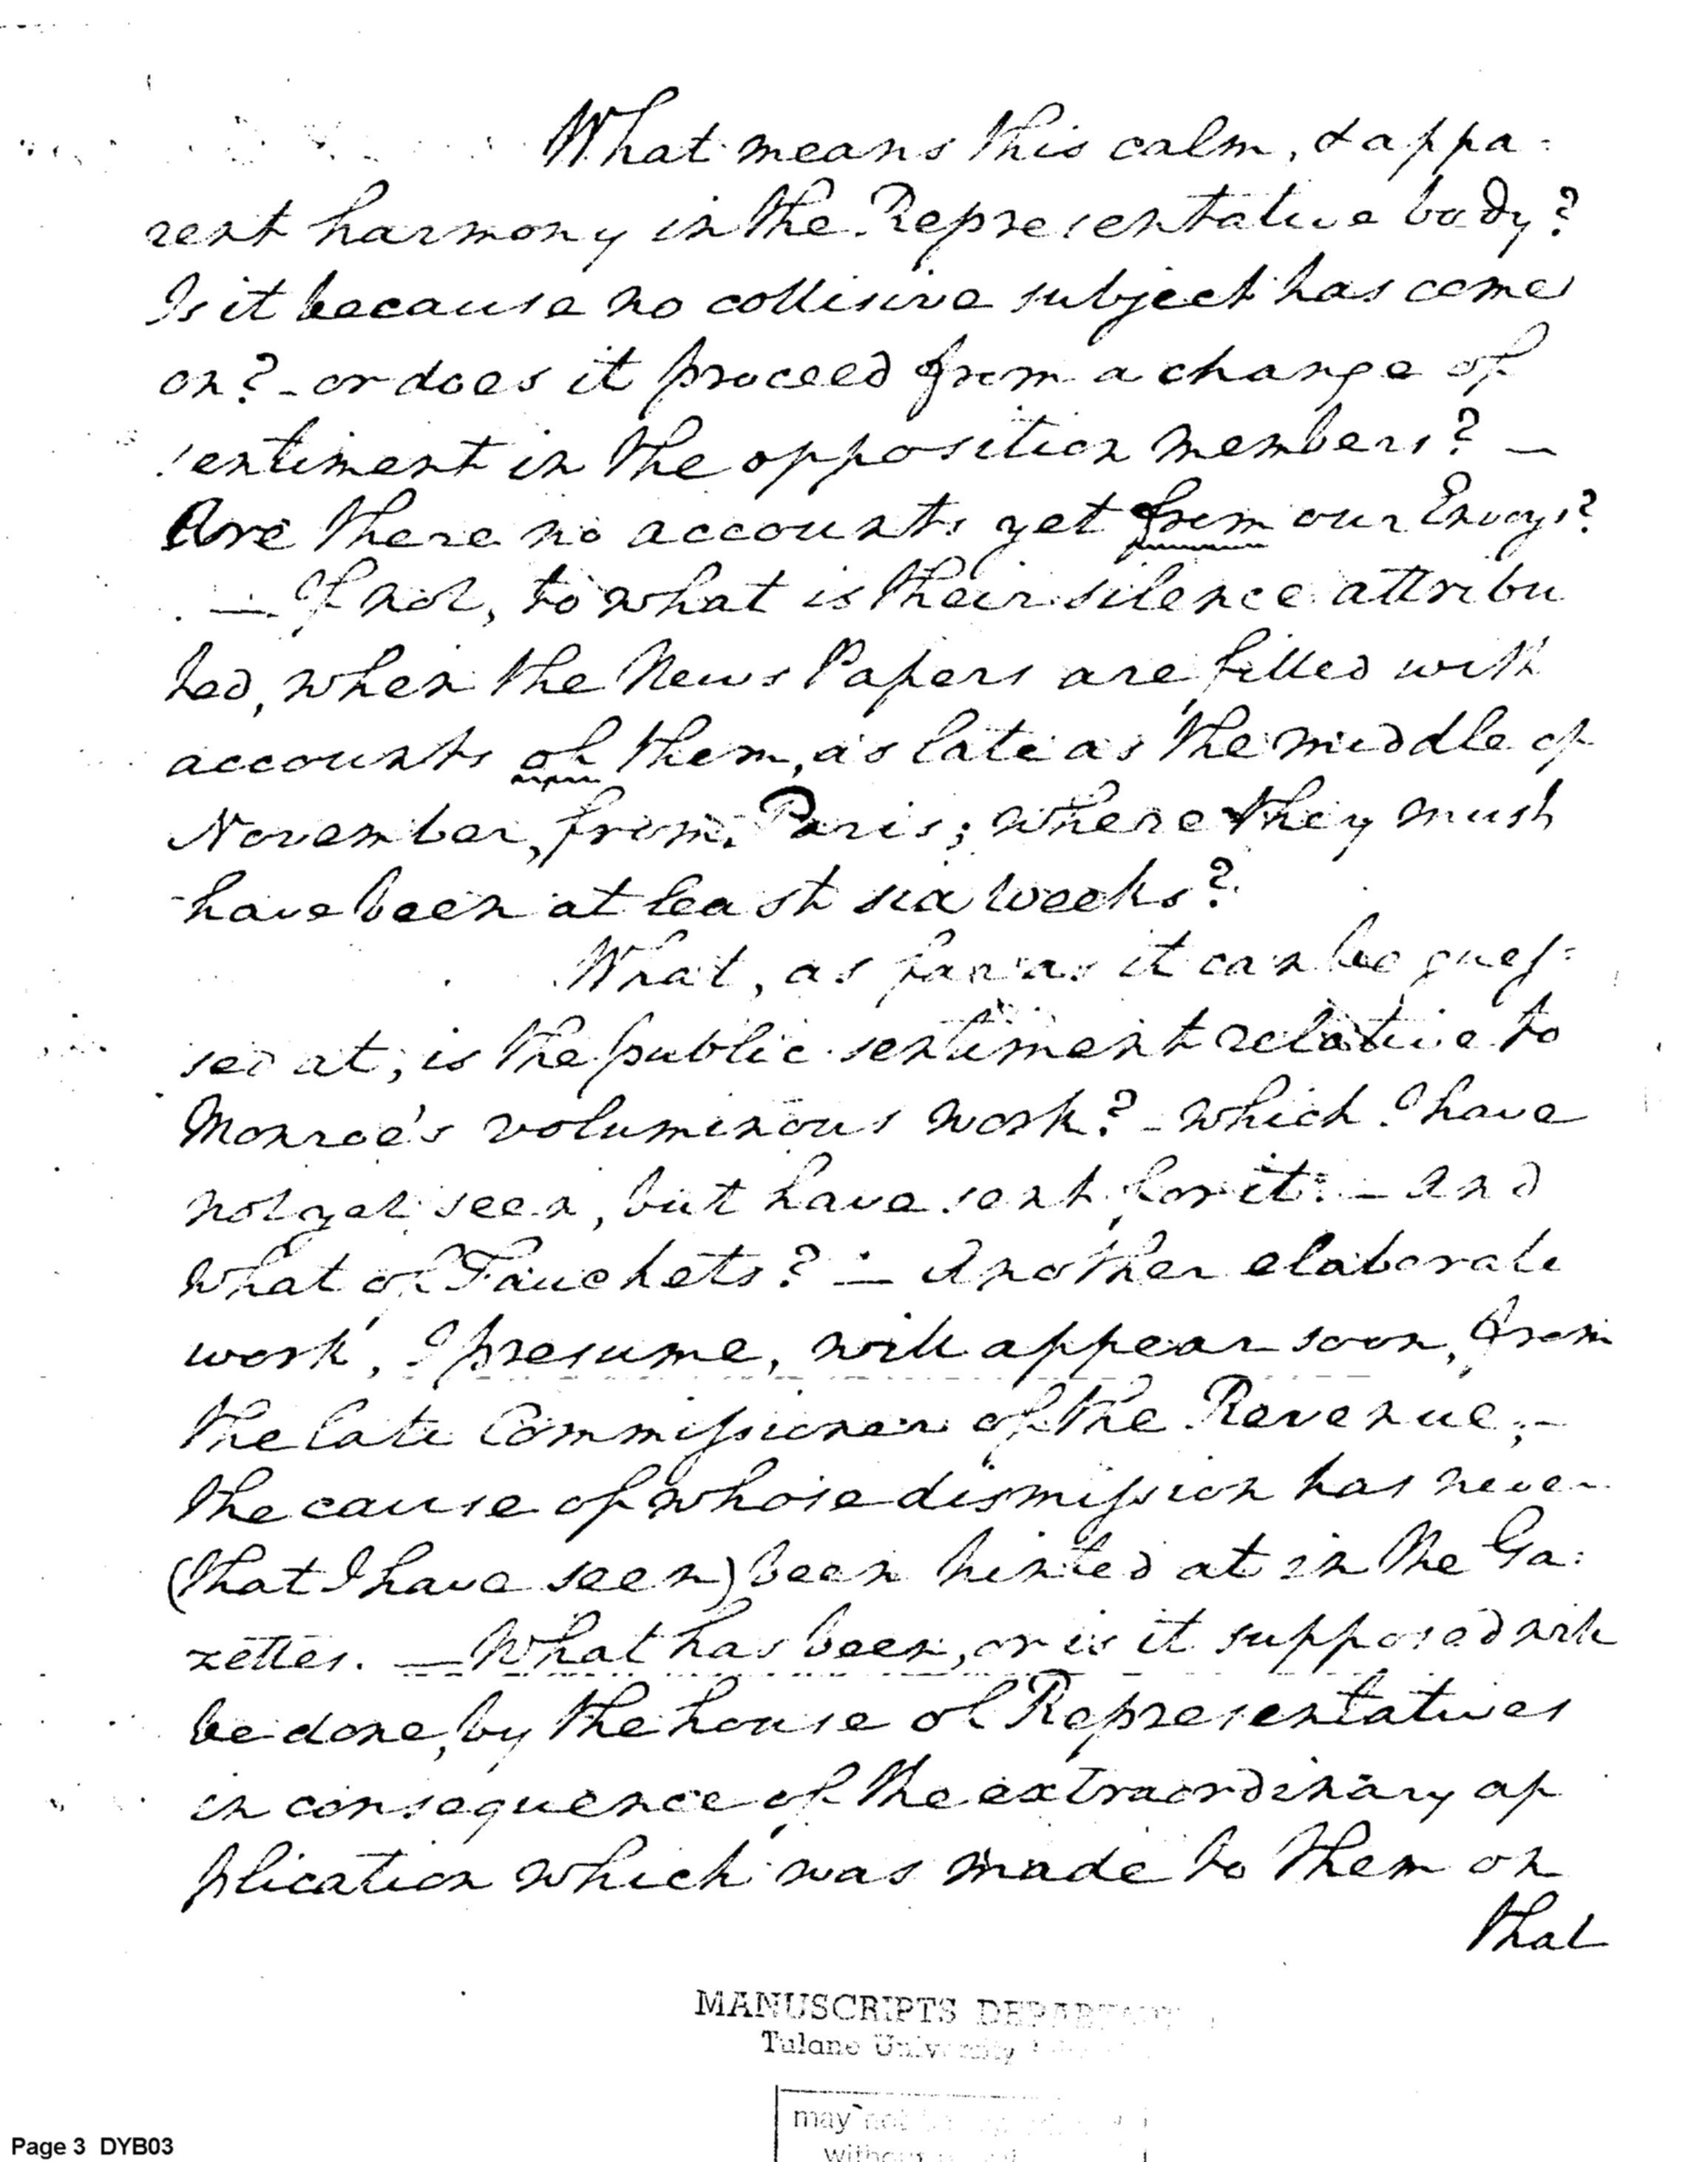 What means this calm, & appa-
rent harmony in the Representative body?
Is it because no collisive subject has come
on? - or does it proceed from a change of
sentiment in the opposition members? —
Are there no accounts yet from our Envoys?
— If not, to what is their silence attribu
ted, when the News Papers are filled with
accounts of them, as late as the middle of
November, from Paris; where they must
have been at least six weeks?
What, as far as it can be gues-
sed at, is the public sentiment relative to
Monroe's voluminous work? - which I have
not yet seen, but have sent for it. - And
what of Fauchets? — Another elaborate
work, I presume, will appear soon, from
the late Commissioner of the Revenue; -
the cause of whose dismission has never
(that I have seen) been hinted at in the Ga-
zettes. — What has been, or is it supposed will
be done, by the house of Representatives
in consequence of the extraordinary ap
plication which was made to them on
that
MANUSCRIPTS DEPARTMENT
Tulane University
may not
without
Page 3 DYB03